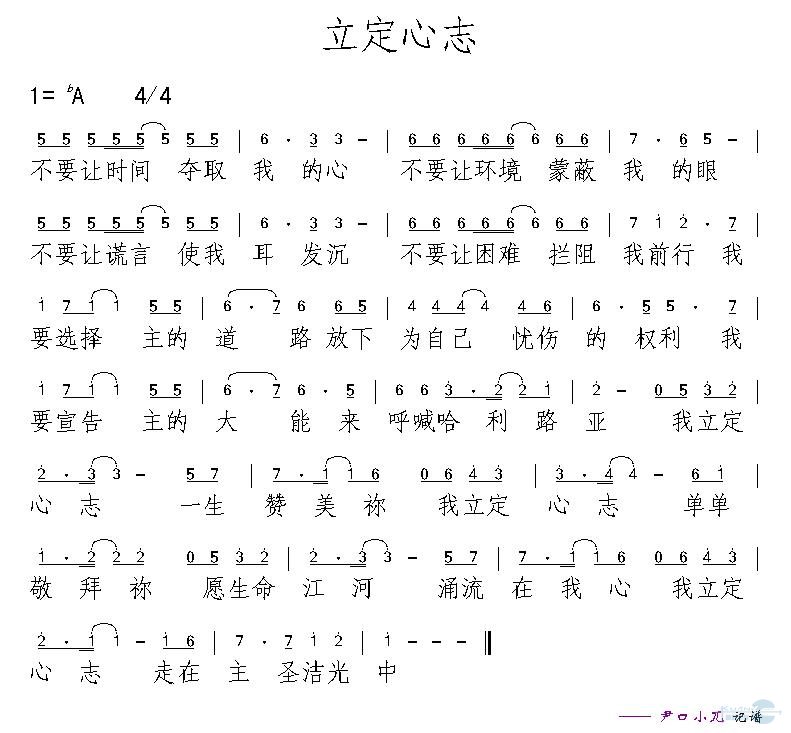 立定心志
1= ♭A 4/4
5 5 5 5 5 5 5 5 | 6 · 3 3 – | 6 6 6 6 6 6 6 6 | 7 · 6 5 – |
不要让时间 夺取 我 的心 不要让环境 蒙蔽 我 的眼
5 5 5 5 5 5 5 5 | 6 · 3 3 – | 6 6 6 6 6 6 6 6 | 7 1̇ 2̇ · 7 |
不要让谎言 使我 耳 发沉 不要让困难 拦阻 我前行 我
1̇ 7 1̇ 1̇ 5 5 | 6 · 7 6 6 5 | 4 4 4 4 4 6 | 6 · 5 5 · 7 |
要选择 主的 道 路放下 为自己 忧伤 的 权利 我
1̇ 7 1̇ 1̇ 5 5 | 6 · 7 6 · 5 | 6 6 3̇ · 2̇ 2̇ 1̇ | 2̇ – 0 5 3̇ 2̇ |
要宣告 主的 大 能来 呼喊哈 利 路 亚 我立定
2̇ · 3̇ 3̇ – 5 7 | 7 · 1̇ 1̇ 6 0 6 4̇ 3̇ | 3̇ · 4̇ 4̇ – 6 1̇ |
心 志 一生 赞 美 祢 我立定 心 志 单单
1̇ · 2̇ 2̇ 2̇ 0 5 3̇ 2̇ | 2̇ · 3̇ 3̇ – 5 7 | 7 · 1̇ 1̇ 6 0 6 4̇ 3̇ |
敬 拜 祢 愿生命 江 河 涌流 在 我 心 我立定
2̇ · 1̇ 1̇ – 1̇ 6 | 7 · 7 1̇ 2̇ | 1̇ – – – ‖
心 志 走在 主 圣洁光 中
—— 尹口小兀 记谱